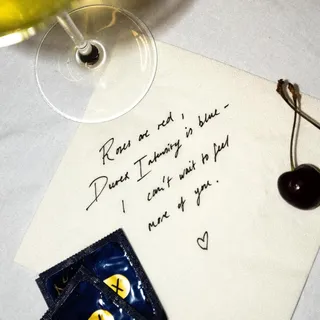 Roses are red,
Durex Intensity is blue-
I can't wait to feel
more of you.